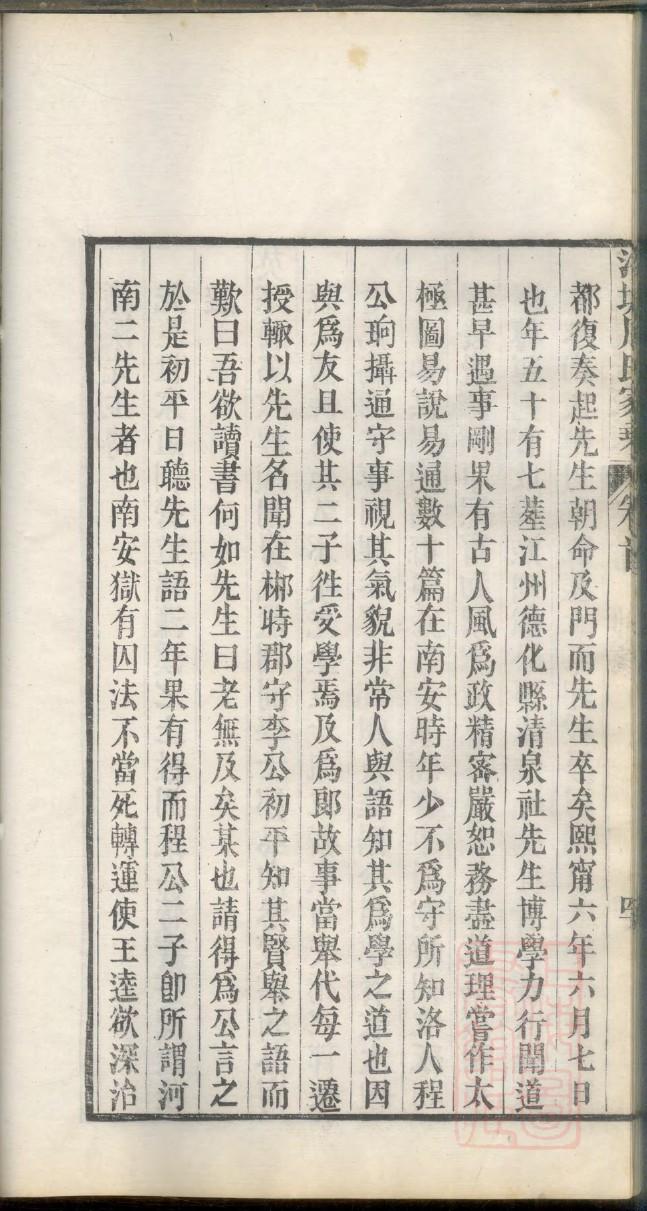 周氏家乘 卷首
都復奏起先生朝命及門而先生卒矣熙甯六年六月七日
也年五十有七塟江州德化縣清泉社先生博學力行聞道
甚早遇事剛果有古人風爲政精密嚴恕務盡道理嘗作太
極圖易說易通數十篇在南安時年少不爲守所知洛人程
公珦攝通守事視其氣貌非常人與語知其爲學之道也因
與爲友且使其二子徃受學焉及爲郞故事當舉代每一遷
授輙以先生名聞在郴時郡守李公初平知其賢舉之語而
歎曰吾欲讀書何如先生曰老無及矣某也請得爲公言之
於是初平日聽先生語二年果有得而程公二子卽所謂河
南二先生者也南安獄有囚法不當死轉運使王逵欲深治